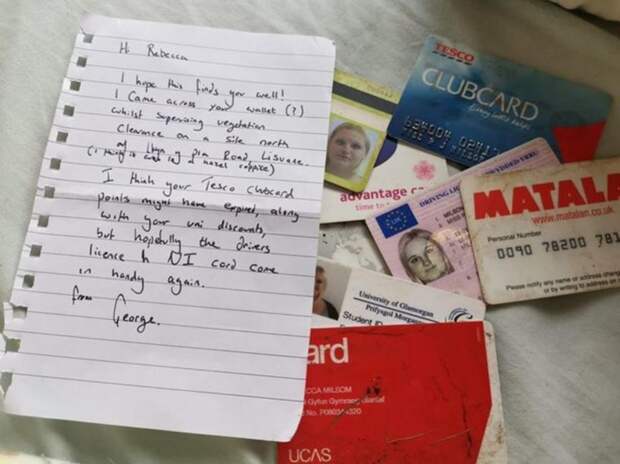 Hi Rebecca
I hope this finds you well!
I came across your wallet (?)
whilst supervising vegetation
clearance on a site north
of Road, Lisvane.
(I think it was by a hazel coppice)
I think your Tesco Clubcard
points might have expired, along
with your uni discounts,
but hopefully the drivers
licence & NI card come
in handy again.
from
George.
TESCO
CLUBCARD
advantage
time to
DRIVING
MATALAN
www.matalan.co.uk
Personal Number
0090 78200 781
Please notify any name or address
or by writing to address
University of Glamorgan
Prifysgol Morgannwg
Student ID
ard
CCA MILSOM
UCAS